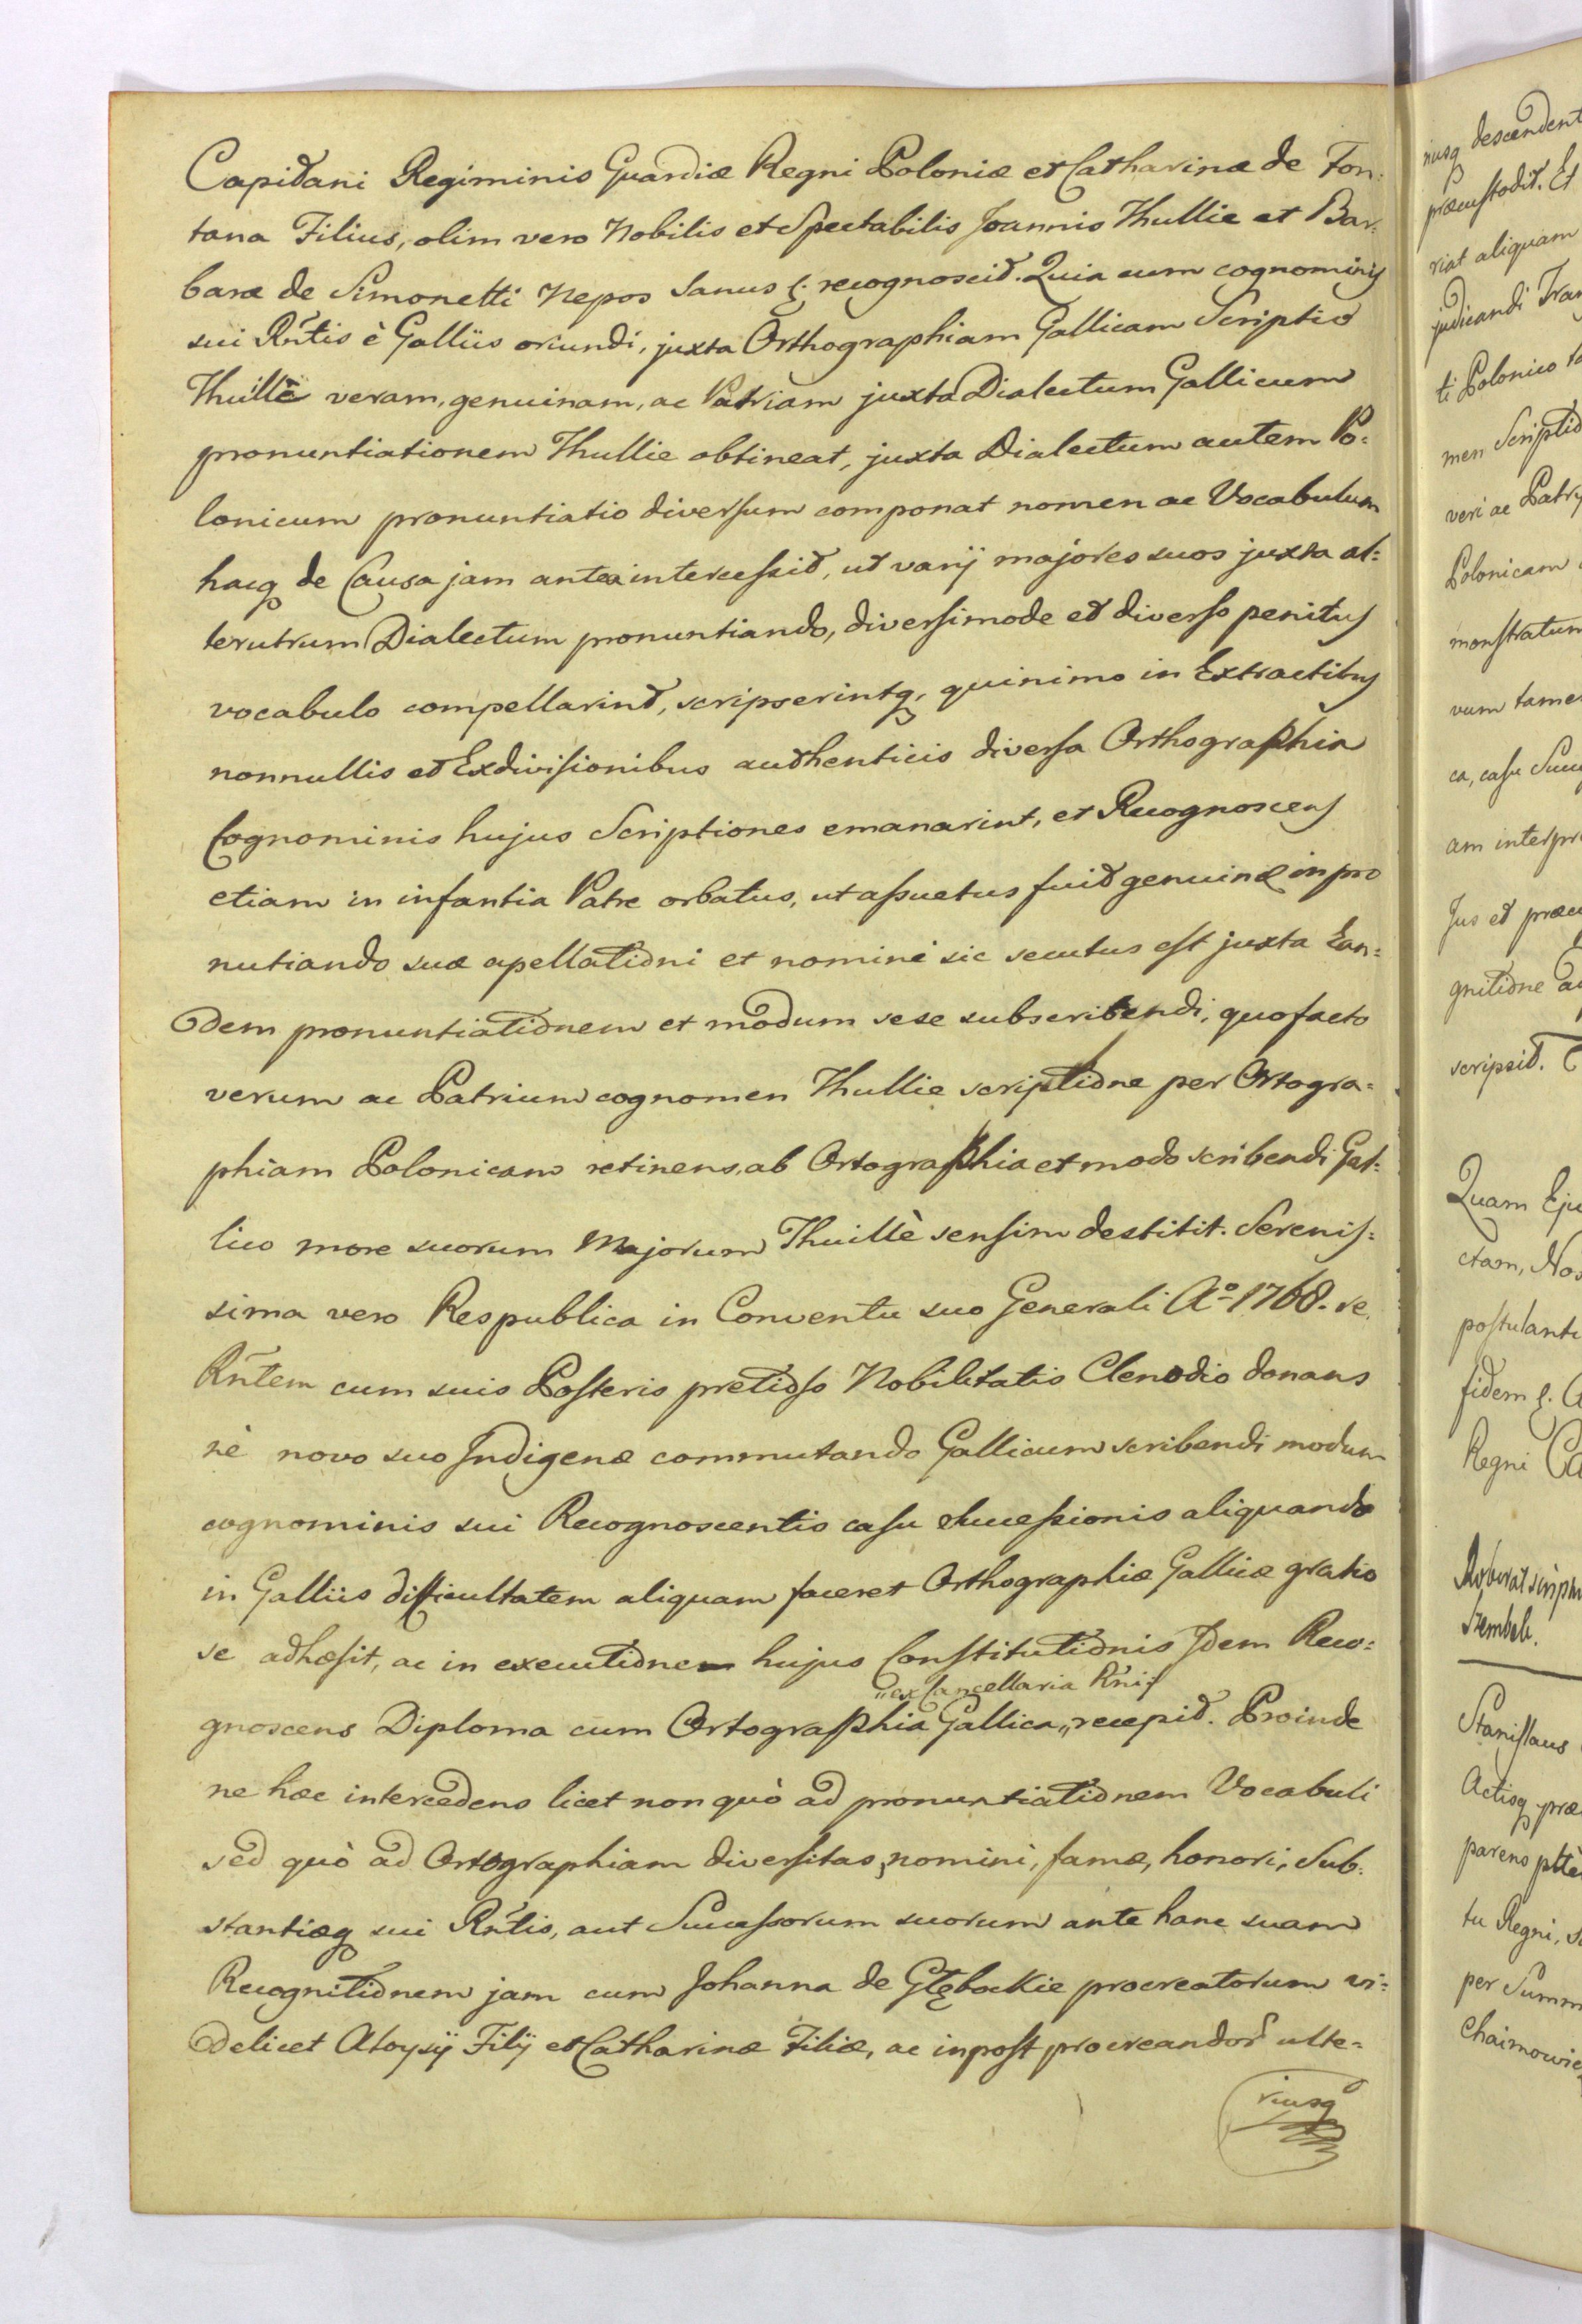 Capitani Regiminis Guardiæ Regni Poloniæ et Catharinæ de Fon:
tana Filius, olim vero Nobilis et Spectabilis Joannis Thullie et Bar:
baræ de Simonetti Nepos Sanus &. recognoscit. Quia cum cognominis
sui Rñtis è Galliis oriundi, juxta Orthographiam Gallicam Scriptio
Thuillè veram, genuinam, ac Patriam juxta Dialectum Gallicum
pronuntiationem Thullie obtineat, juxta Dialectum autem Po:
lonicum pronuntiatio diversum componat nomen ac Vocabulum
hacq de Causa jam antea intercessit, ut varij majores suos juxta al:
terutrum Dialectum pronuntiando, diversimode et diverso penitus
vocabulo compellarint, scripserintq, quinimo in Extractibus
nonnullis et Exdivisionibus authenticis diversa Orthographia
Cognominis hujus Scriptiones emanarint, et Recognoscens
etiam in infantia Patre orbatus, ut assuetus fuit genuinæ in pro
nutiando suæ apellationi et nomini sic secutus est juxta Ean:
dem pronuntiationem et modum sese subscribendi, quo facto
verum ac Patrium cognomen Thullie scriptione per Ortogra:
phiam Polonicam retinens, ab Ortographia et modo scribendi Gal:
lico more suorum Majorum Thuillè sensim destitit. Serenis:
sima vero Respublica in Conventu suo Generali Aº 1768. se
Rñtem cum suis Posteris pretioso Nobilitatis Clenodio donans
nè novo suo Indigenæ commutando Gallicum scribendi modum
cognominis sui Recognoscentis casu Successionis aliquando
in Galliis difficultatem aliquam faceret Orthographiæ Gallicæ gratio
se adhæsit, ac in executionem hujus Constitutionis Idem Reco:
"ex Cancellaria Rni"
gnoscens Diploma cum Ortographia Gallica,, recepit. Proinde
ne hæc intercedens licet non quò ad pronuntiationem Vocabuli
sed quò ad Ortographiam diversitas, nomini, famæ, honori, Sub:
stantiæq sui Rñtis, aut Successorum suorum ante hanc suam
Recognitionem jam cum Johanna de Głębockie procreatorum vi:
delicet Aloysij Filij et Catharinæ Filiæ, ac inpost procreandor ulte:
riusq
iusq descendent
præcustodit. Et
riat aliquam
judicandi
ti Polonico
men Scriptio
veri ac
Polonicam
monstratum
vum tamen
ca, casu
am interpr
Jus et
gnitione
scripsit.
Quam
ctam,
postulanti
fidem &.
Regni
Stanislaus
Actisq præ
parens
tu Regni,
per Summ